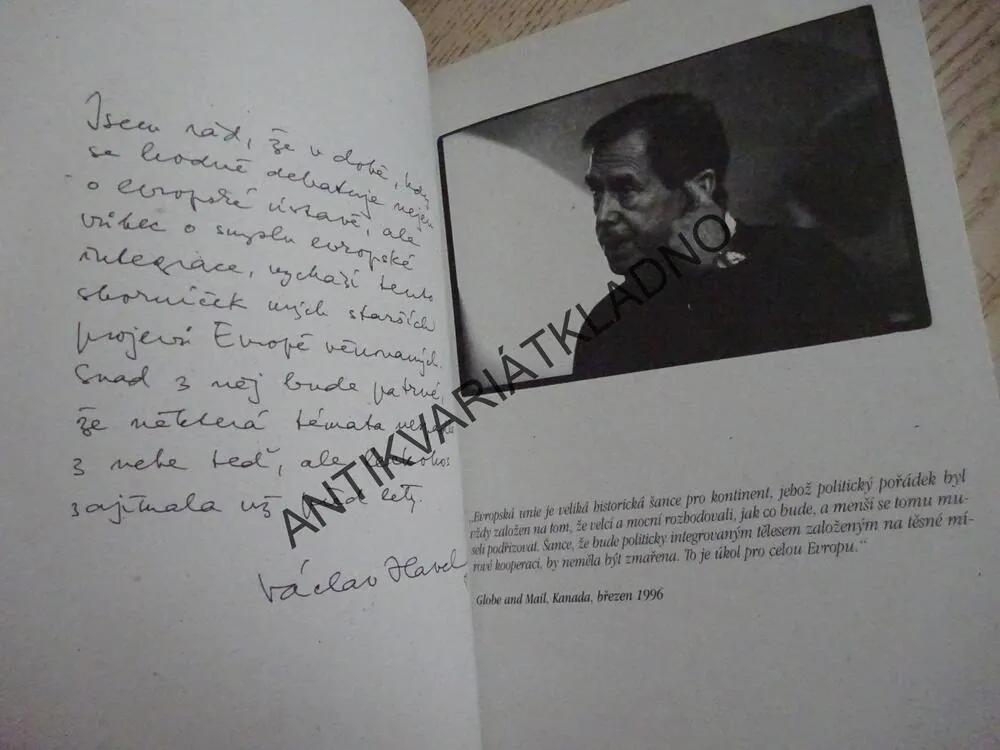 Jsem rád, že v době, kdy
se hodně debatuje nejen
o evropské ústavě, ale
vůbec o smyslu evropské
integrace, vychází tento
sborníček mých starších
projevů Evropě věnovaných.
Snad z něj bude patrné,
že některá témata
z nebe teď, ale
zajímala už před lety.
Václav Havel
ANTIKVARIÁTKLADNO
„Evropská unie je veliká historická šance pro kontinent, jehož politický pořádek byl
vždy založen na tom, že velcí a mocní rozhodovali, jak co bude, a menší se tomu mu-
seli podřizovat. Šance, že bude politicky integrovaným tělesem založeným na těsné mí-
rové kooperaci, by neměla být zmařena. To je úkol pro celou Evropu.“
Globe and Mail, Kanada, březen 1996